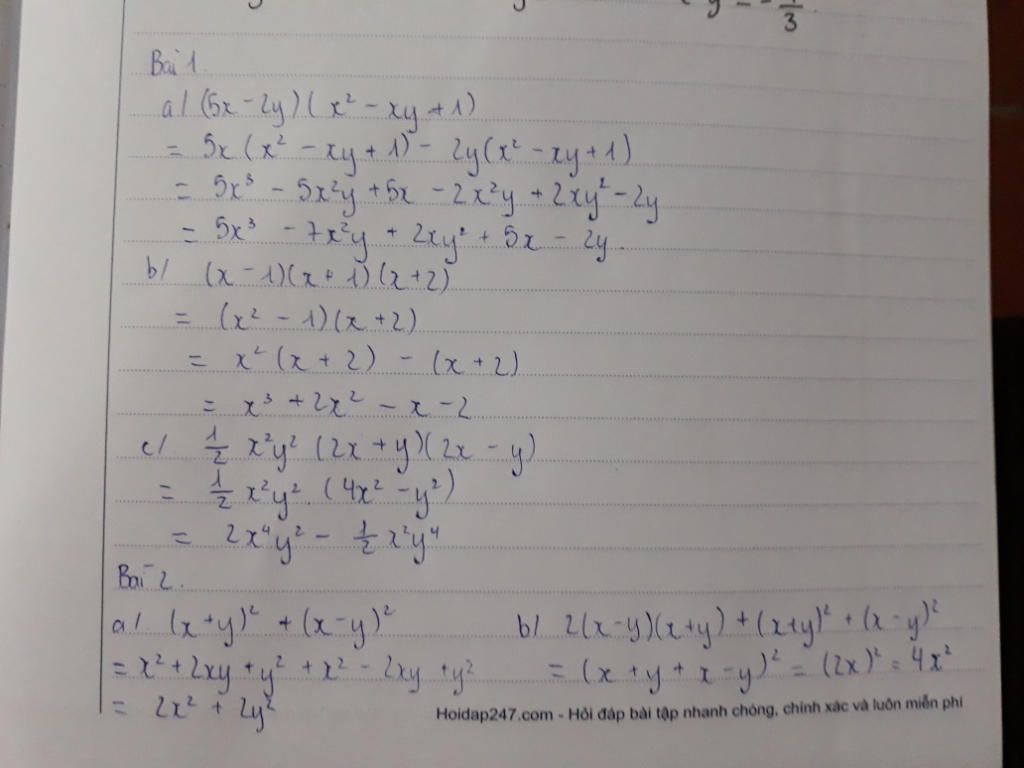 y = - 1/3
Bài 1.
a/ (5x - 2y)(x² - xy + 1)
= 5x(x² - xy + 1) - 2y(x² - xy + 1)
= 5x³ - 5x²y + 5x - 2x²y + 2xy² - 2y
= 5x³ - 7x²y + 2xy² + 5x - 2y.
b/ (x - 1)(x + 1)(x + 2)
= (x² - 1)(x + 2)
= x²(x + 2) - (x + 2)
= x³ + 2x² - x - 2
c/ 1/2 x²y² (2x + y)(2x - y)
= 1/2 x²y². (4x² - y²)
= 2x⁴y² - 1/2 x²y⁴
Bài 2.
a/ (x + y)² + (x - y)²
= x² + 2xy + y² + x² - 2xy + y²
= 2x² + 2y²
b/ 2(x - y)(x + y) + (x + y)² + (x - y)²
= (x + y + x - y)² = (2x)² = 4x²
Hoidap247.com - Hỏi đáp bài tập nhanh chóng, chính xác và luôn miễn phí